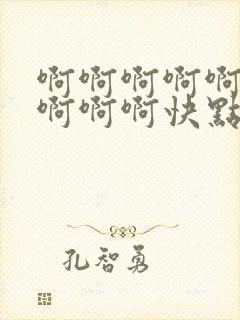 啊啊啊啊啊
啊啊啊快點
孔智勇